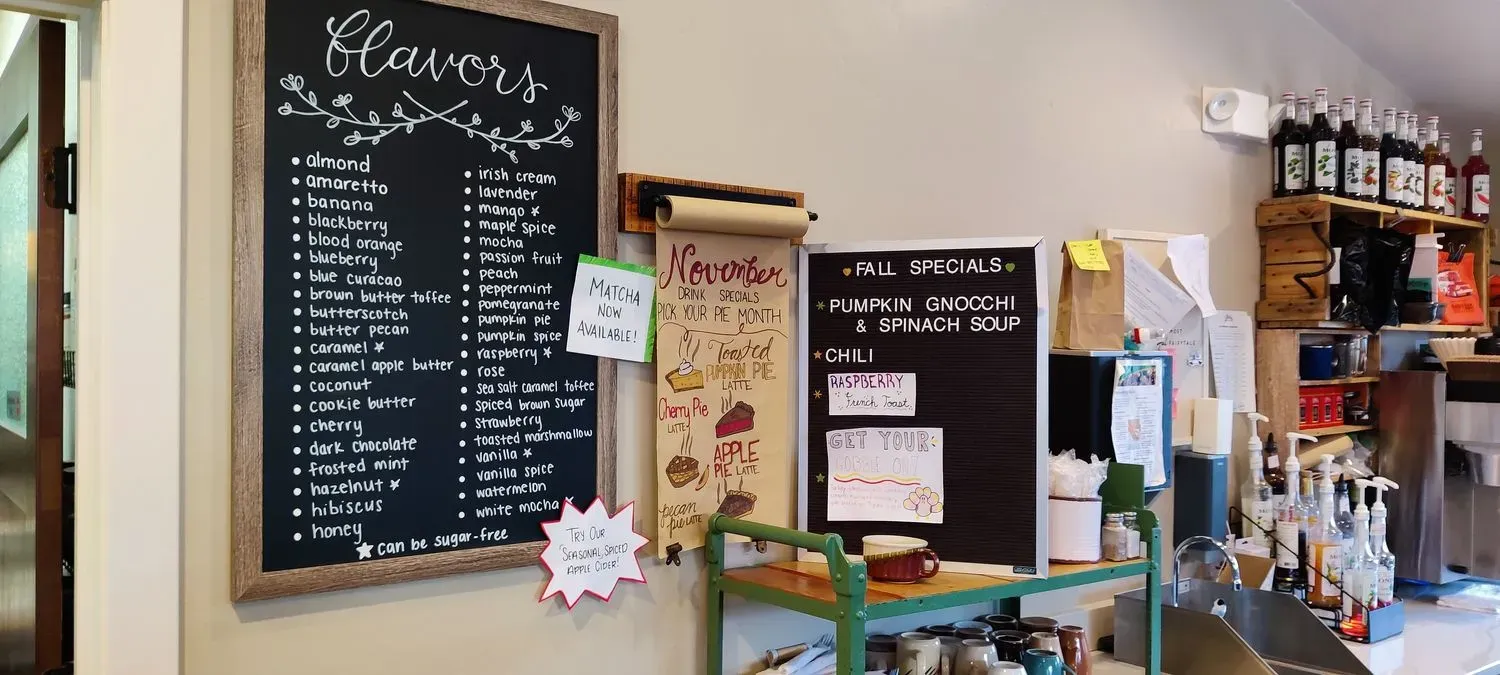 flavors
• almond
• amaretto
• banana
• blackberry
• blood orange
• blueberry
• blue curacao
• brown butter toffee
• butterscotch
• butter pecan
• caramel ★
• caramel apple butter
• coconut
• cookie butter
• cherry
• dark chocolate
• frosted mint
• hazelnut ★
• hibiscus
• honey
• irish cream
• lavender
• mango ★
• maple spice
• mocha
• passion fruit
• peach
• peppermint
• pomegranate
• pumpkin pie
• pumpkin spice
• raspberry ★
• rose
• sea salt caramel toffee
• spiced brown sugar
• strawberry
• toasted marshmallow
• vanilla ★
• vanilla spice
• watermelon
• white mocha
★ can be sugar-free
MATCHA
NOW
AVAILABLE!
TRY OUR
SEASONAL, SPICED
APPLE CIDER!
November
DRINK SPECIALS
PICK YOUR PIE MONTH
Toasted
PUMPKIN PIE
LATTE
Cherry Pie
LATTE
APPLE
PIE LATTE
pecan
pie LATTE
FALL SPECIALS
PUMPKIN GNOCCHI
& SPINACH SOUP
CHILI
RASPBERRY
French Toast
GET YOUR
GOBBLE ON!